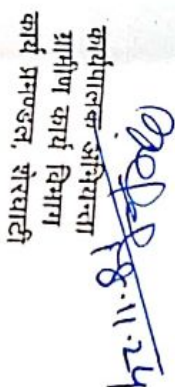 18.11.24
कार्यपालक अभियन्ता
ग्रामीण कार्य विभाग
कार्य प्रमण्डल, शेरघाटी